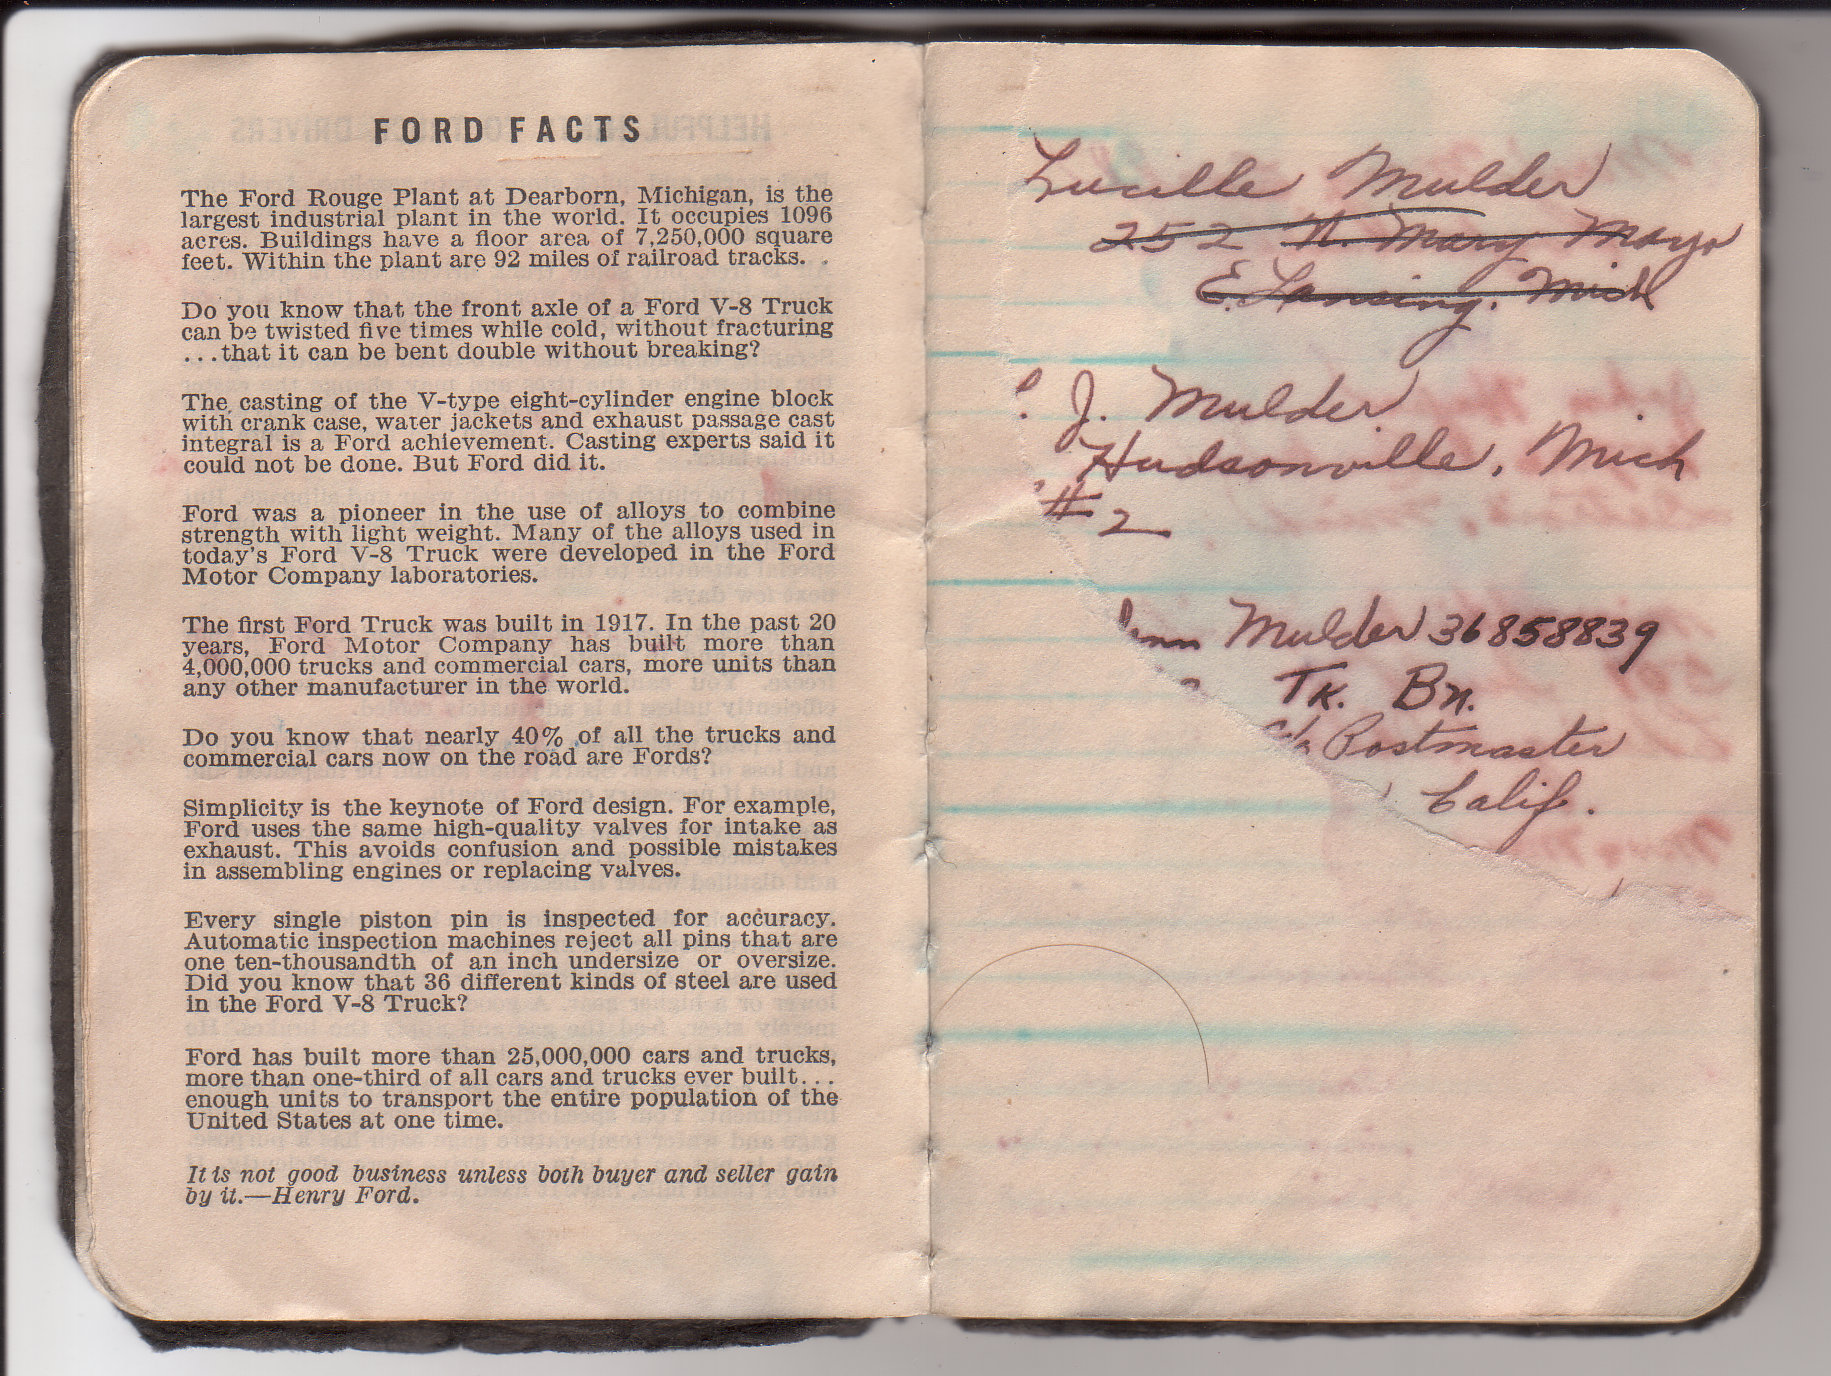 FORD FACTS
The Ford Rouge Plant at Dearborn, Michigan, is the
largest industrial plant in the world. It occupies 1096
acres. Buildings have a floor area of 7,250,000 square
feet. Within the plant are 92 miles of railroad tracks.
Do you know that the front axle of a Ford V-8 Truck
can be twisted five times while cold, without fracturing
...that it can be bent double without breaking?
The casting of the V-type eight-cylinder engine block
with crank case, water jackets and exhaust passage cast
integral is a Ford achievement. Casting experts said it
could not be done. But Ford did it.
Ford was a pioneer in the use of alloys to combine
strength with light weight. Many of the alloys used in
today's Ford V-8 Truck were developed in the Ford
Motor Company laboratories.
The first Ford Truck was built in 1917. In the past 20
years, Ford Motor Company has built more than
4,000,000 trucks and commercial cars, more units than
any other manufacturer in the world.
Do you know that nearly 40% of all the trucks and
commercial cars now on the road are Fords?
Simplicity is the keynote of Ford design. For example,
Ford uses the same high-quality valves for intake as
exhaust. This avoids confusion and possible mistakes
in assembling engines or replacing valves.
Every single piston pin is inspected for accuracy.
Automatic inspection machines reject all pins that are
one ten-thousandth of an inch undersize or oversize.
Did you know that 36 different kinds of steel are used
in the Ford V-8 Truck?
Ford has built more than 25,000,000 cars and trucks,
more than one-third of all cars and trucks ever built...
enough units to transport the entire population of the
United States at one time.
It is not good business unless both buyer and seller gain
by it.—Henry Ford.
Lucille Mulder
252 N. Mary Mayo
E. Lansing, Mich
J. Mulder
Hudsonville, Mich
#2
Mulder 36858839
TK. Bn.
c/o Postmaster
Calif.